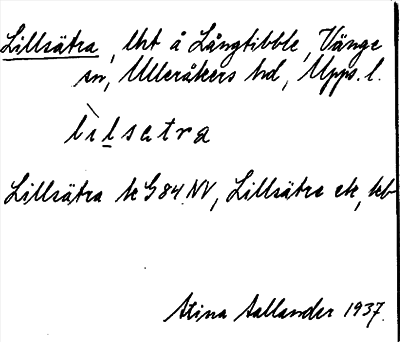 Lillsätra, lht å Långtibble, Vänge
sn, Ulleråkers hd, Upps. l.
lìlsetra
Lillsätra k G84 NV, Lillsätra ek, hb
Stina Aallander 1937.